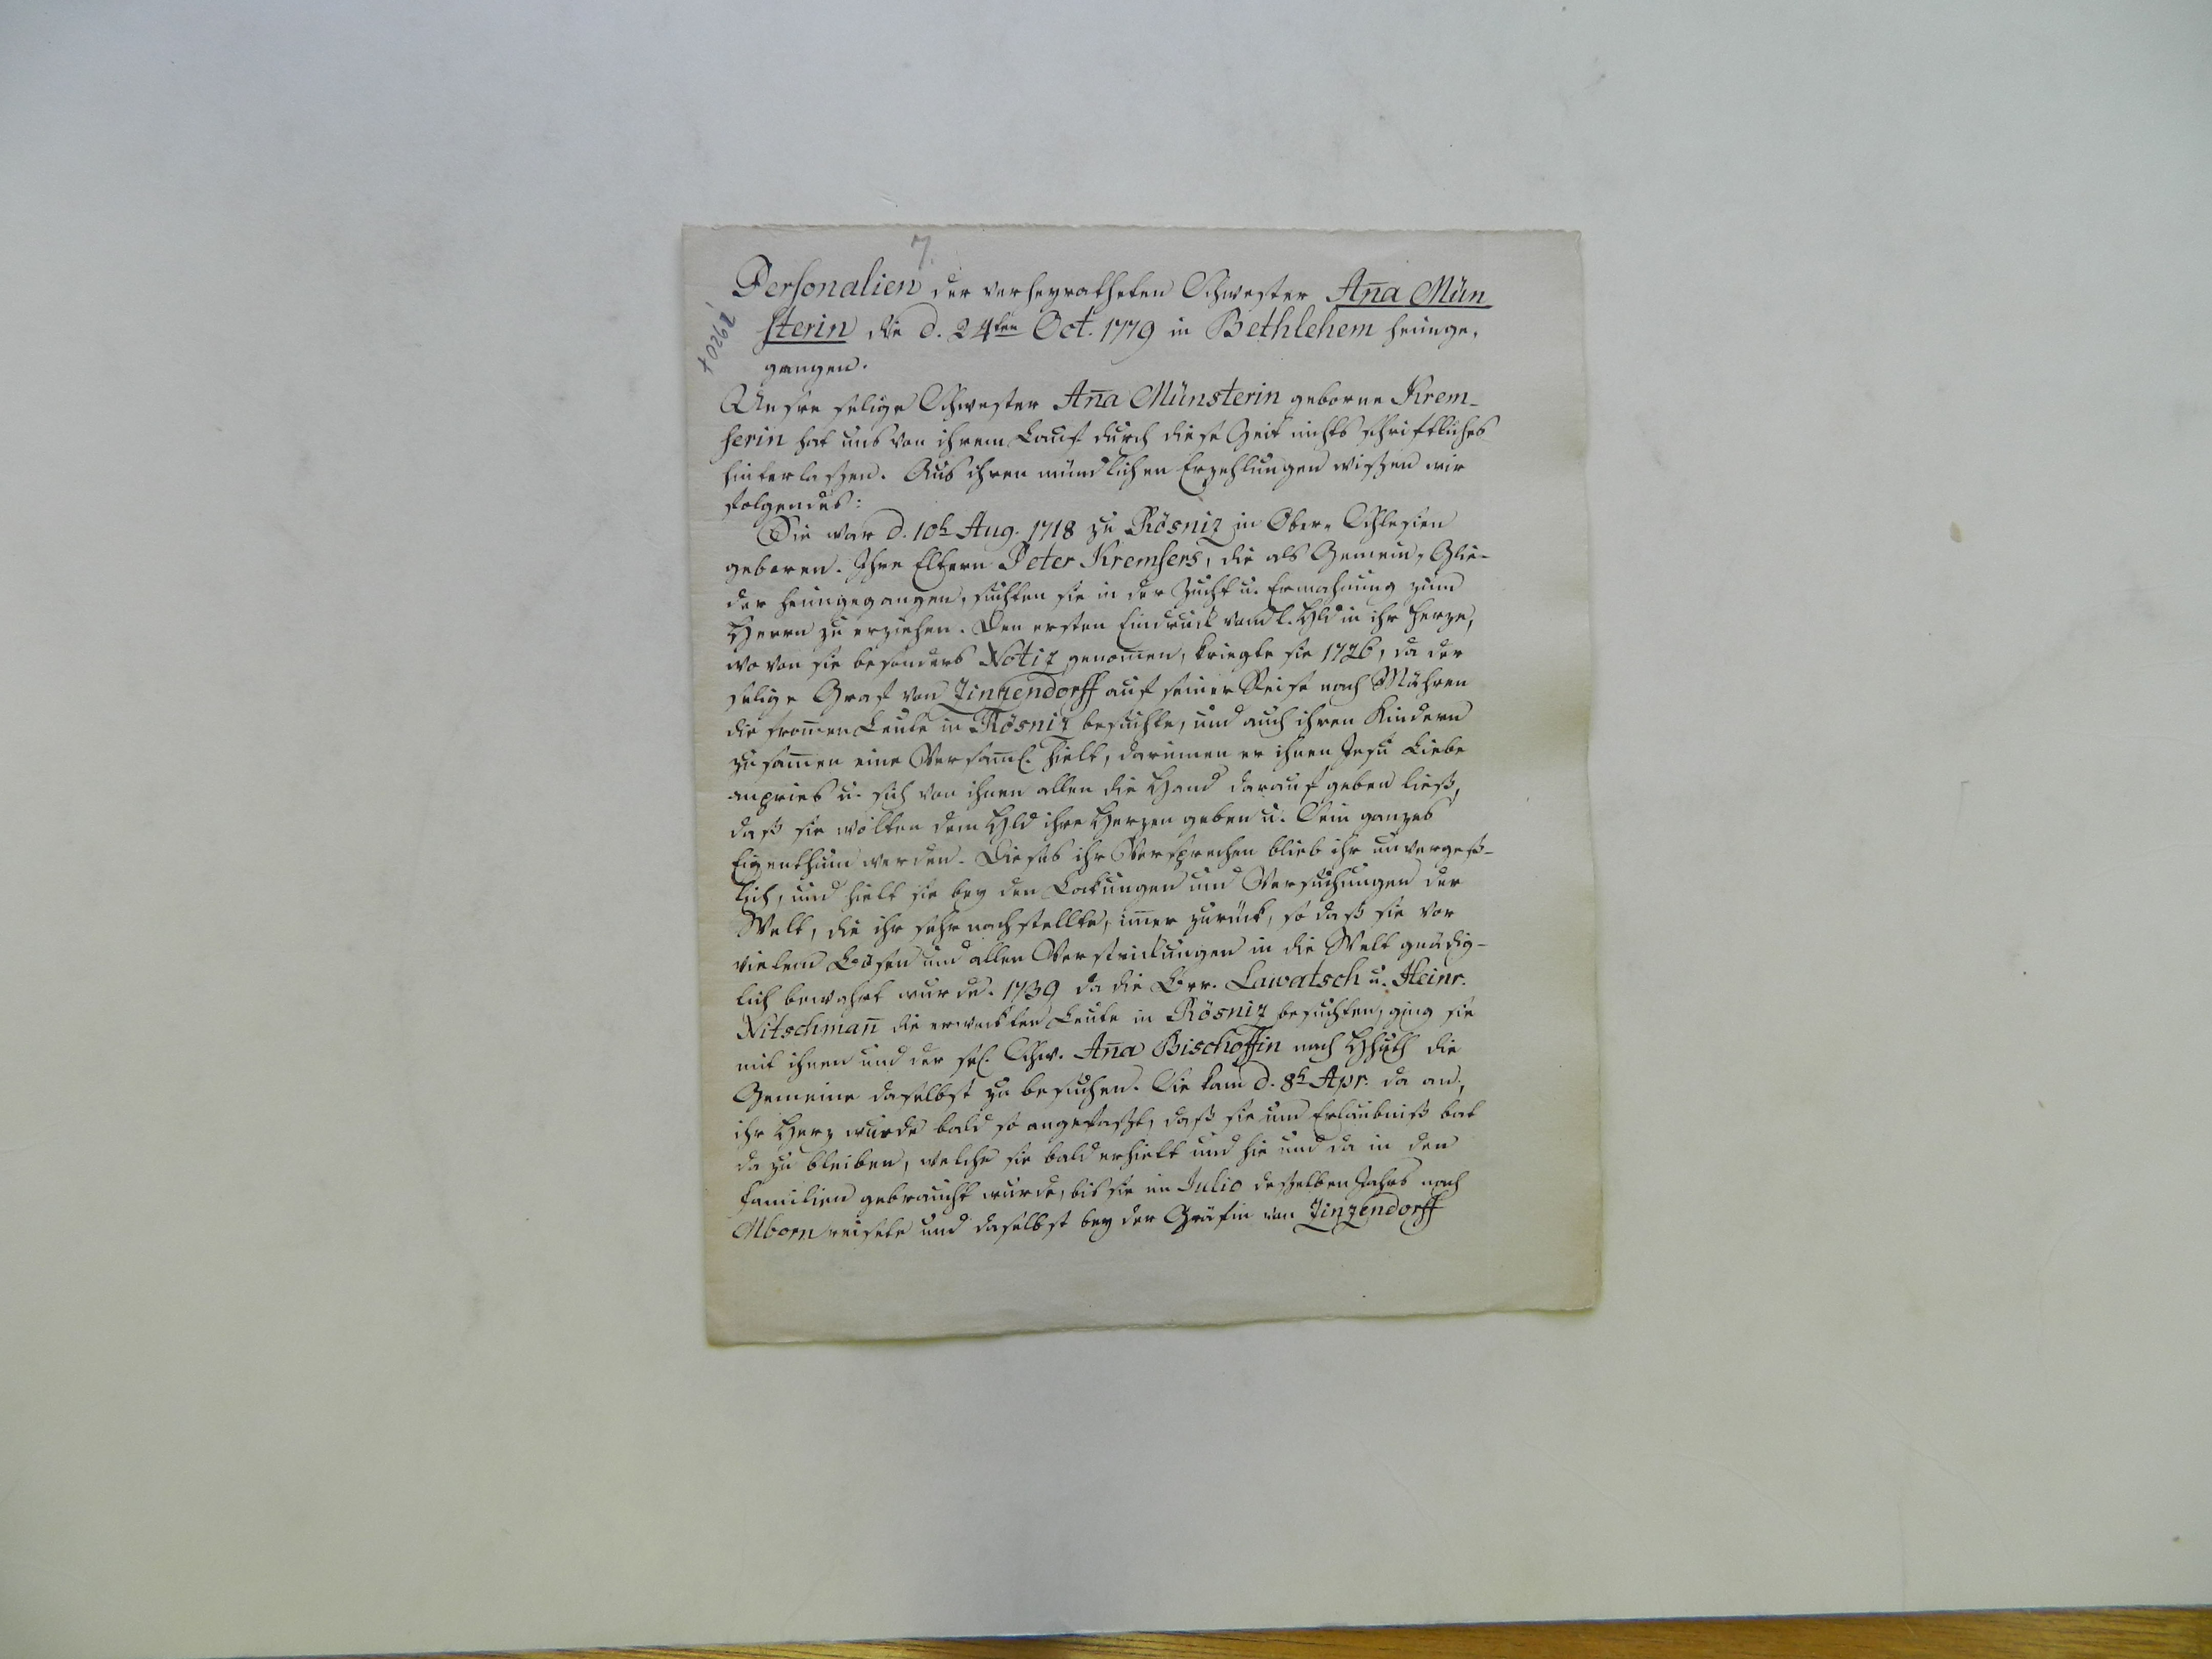 7.
Personalien der verheyratheten Schwester Ana̅ Mün
sterin die d. 24ten Oct. 1779 in Bethlehem heimge,
gangen.
Unsre selige Schwester Ana̅ Münsterin geborne Krem-
serin hat uns von ihrem Lauf durch diese Zeit nichts schriftliches
hinterlaßen. Aus ihren mündlichen Erzehlungen wißen wir
folgendes:
Sie war d. 10t Aug. 1718 zu Rösniz in Ober-Schlesien
geboren. Ihre Eltern Peter Kremsers, die als Gemein-Glie-
der heimgegangen, suchten sie in der Zucht u. Ermahnung zum
Herrn zu erziehen. Den ersten Eindruck vom l. Hld in ihr Herze,
wovon sie besonders Notiz genom̅en, kriegte sie 1726, da der
selige Graf von Zinzendorff auf seiner Reise nach Mähren
die from̅en Leute in Rösniz besuchte, und auch ihren Kindern
zusam̅en eine Versam̅l. hielt, darinnen er ihnen Jesu Liebe
anpries u. sich von ihnen allen die Hand darauf geben ließ,
daß sie wolten dem Hld ihre Herzen geben u. Sein ganzes
Eigenthum werden. Dieses ihr Versprechen blieb ihr unvergeß-
lich, und hielt sie bey den Lokungen und Versuchungen der
Welt, die ihr sehr nachstellte, im̅er zurück, so daß sie vor
vielem Bösen und allen Verstrickungen in die Welt gnädig-
lich bewahrt wurde. 1739 da die Brr. Lawatsch u. Heinr.
Nitschman̅ die erweckten Leute in Rösniz besuchten, ging sie
mit ihnen und der sel. Schw. Ana̅ Bischoffin nach Hhuth die
Gemeine daselbst zu besuchen. Sie kam d. 8t Apr. da an,
ihr Herz wurde bald so angefaßt, daß sie um Erlaubniß bat
da zu bleiben, welche sie bald erhielt und hie und da in den
Familien gebraucht wurde, bis sie im Julio deßelben Jahrs nach
Mborn reisete und daselbst bey der Gräfin von Zinzendorff